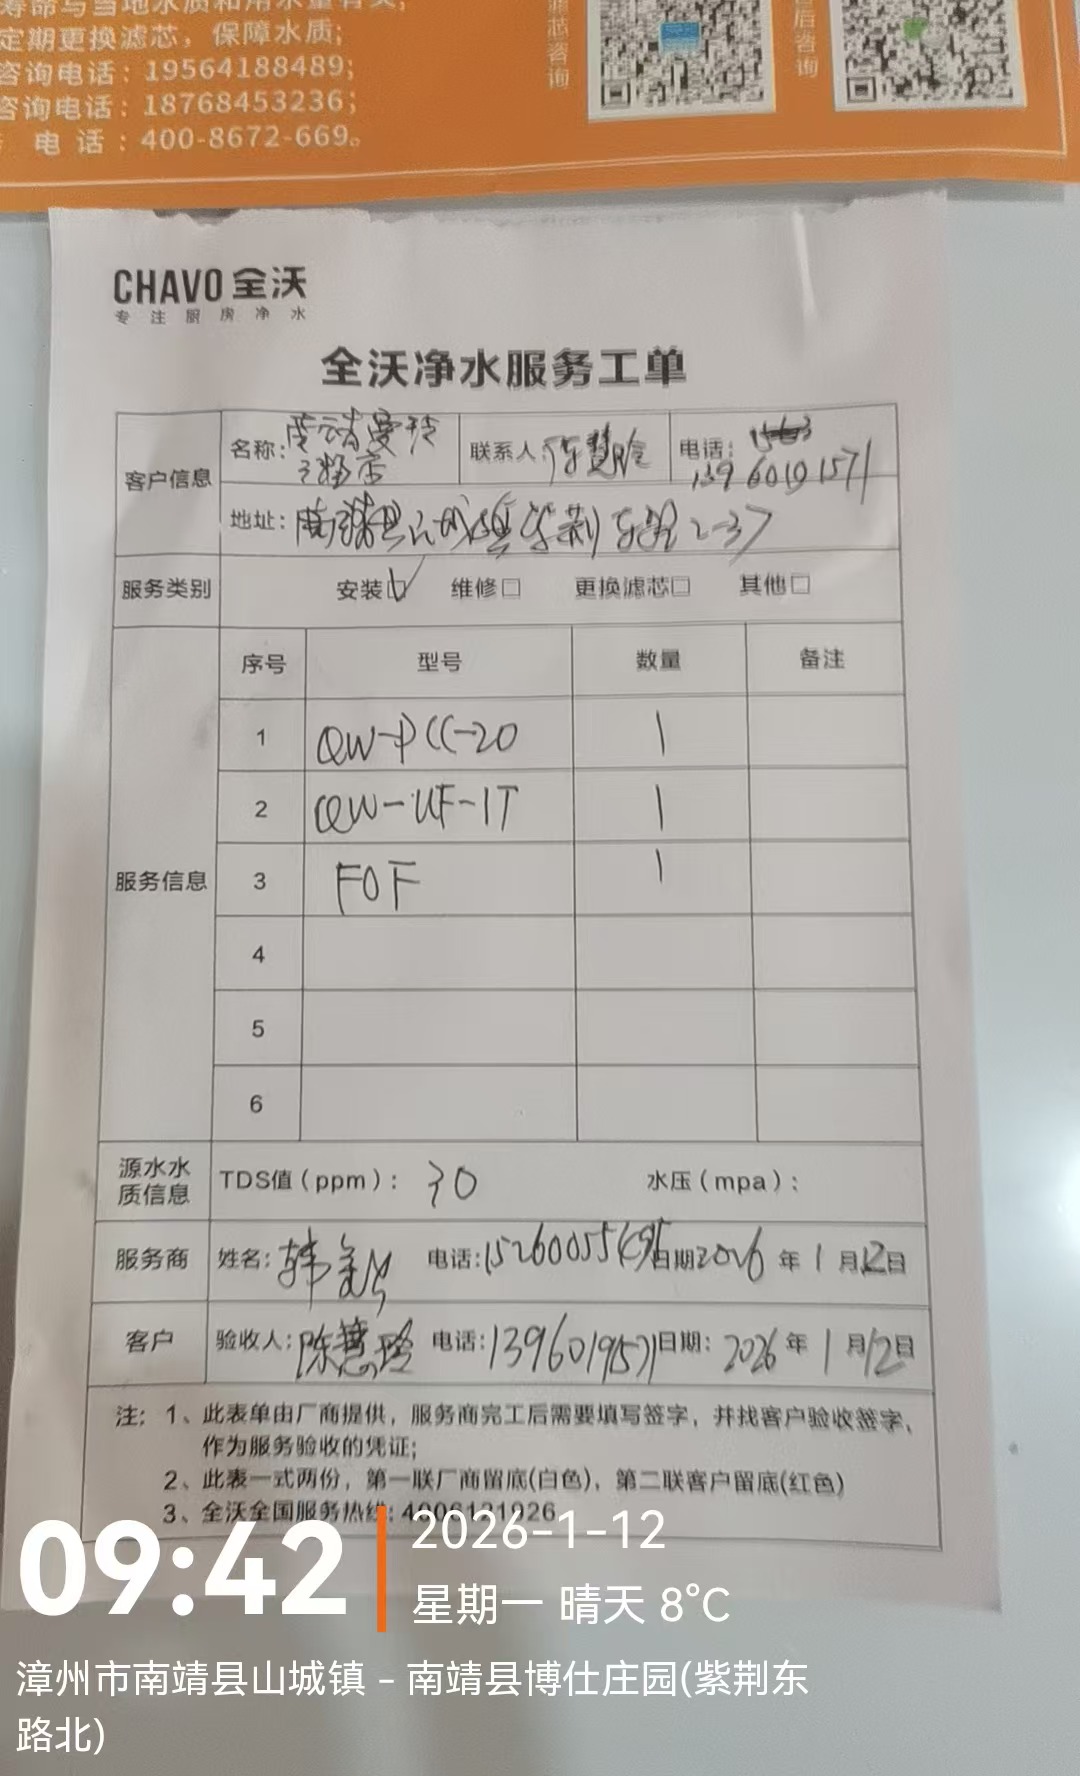 寿命与当地水质和用水量有关;
定期更换滤芯，保障水质;
咨询电话：19564188489;
咨询电话：18768453236;
电话：400-8672-669。
滤芯咨询
售后咨询
CHAVO 全沃
专注厨房净水
全沃净水服务工单
客户信息 名称: 联系人: 陈慧玲 电话:
13960191571
地址: 南靖县山城镇紫荆东路2-37
服务类别 安装☑ 维修□ 更换滤芯□ 其他□
服务信息
序号 型号 数量 备注
1 QW-PCC-20 1
2 QW-UF-1T 1
3 FOF 1
4
5
6
源水水质信息 TDS值（ppm）: 30 水压（mpa）:
服务商 姓名: 韩 电话: 日期 2026 年 1 月 12 日
客户 验收人: 陈慧玲 电话: 13960191571 日期: 2026 年 1 月 12 日
注: 1、此表单由厂商提供，服务商完工后需要填写签字，并找客户验收签字，
作为服务验收的凭证;
2、此表一式两份，第一联厂商留底(白色)，第二联客户留底(红色)
3、全沃全国服务热线: 4006121926
09:42
2026-1-12
星期一 晴天 8℃
漳州市南靖县山城镇 - 南靖县博仕庄园(紫荆东
路北)